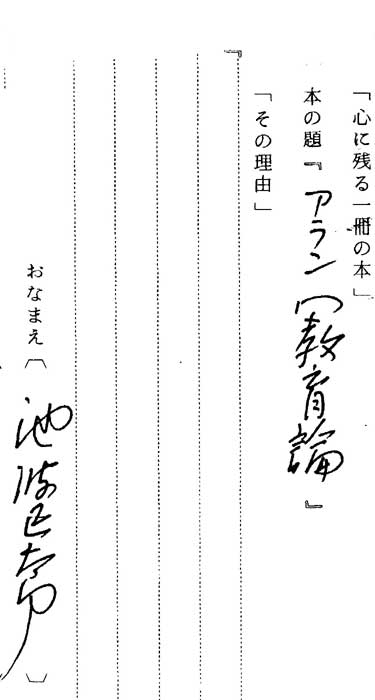 「心に残る一冊の本」
本の題『アラン 教育論』
「その理由」
『
おなまえ〔池波正太郎〕